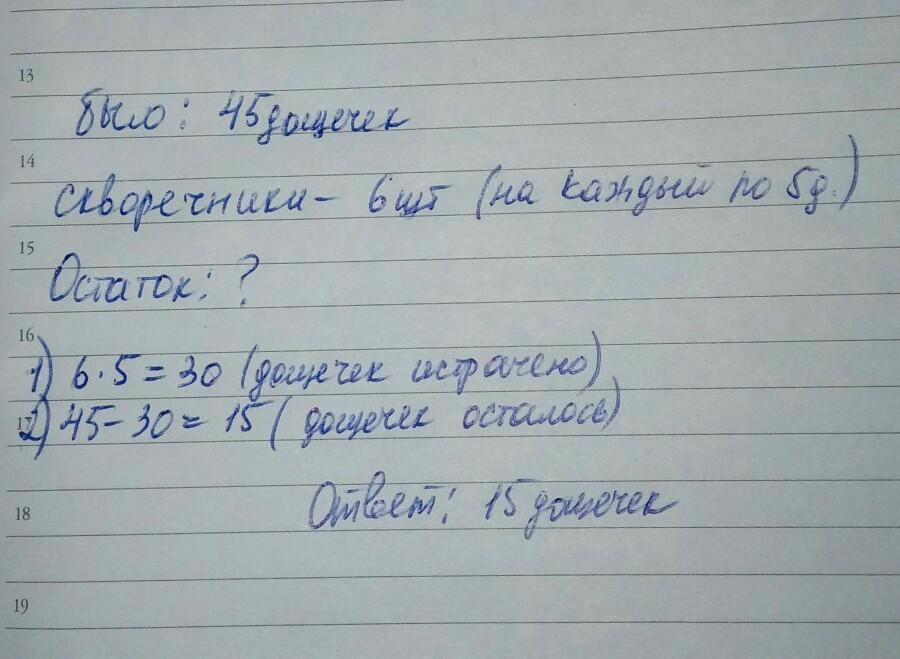 13
Было: 45 дощечек
14
Скворечники - 6 шт (на каждый по 5 д.)
15
Остаток: ?
16
1) 6 · 5 = 30 (дощечек истрачено)
17
2) 45 - 30 = 15 (дощечек осталось)
Ответ: 15 дощечек
18
19